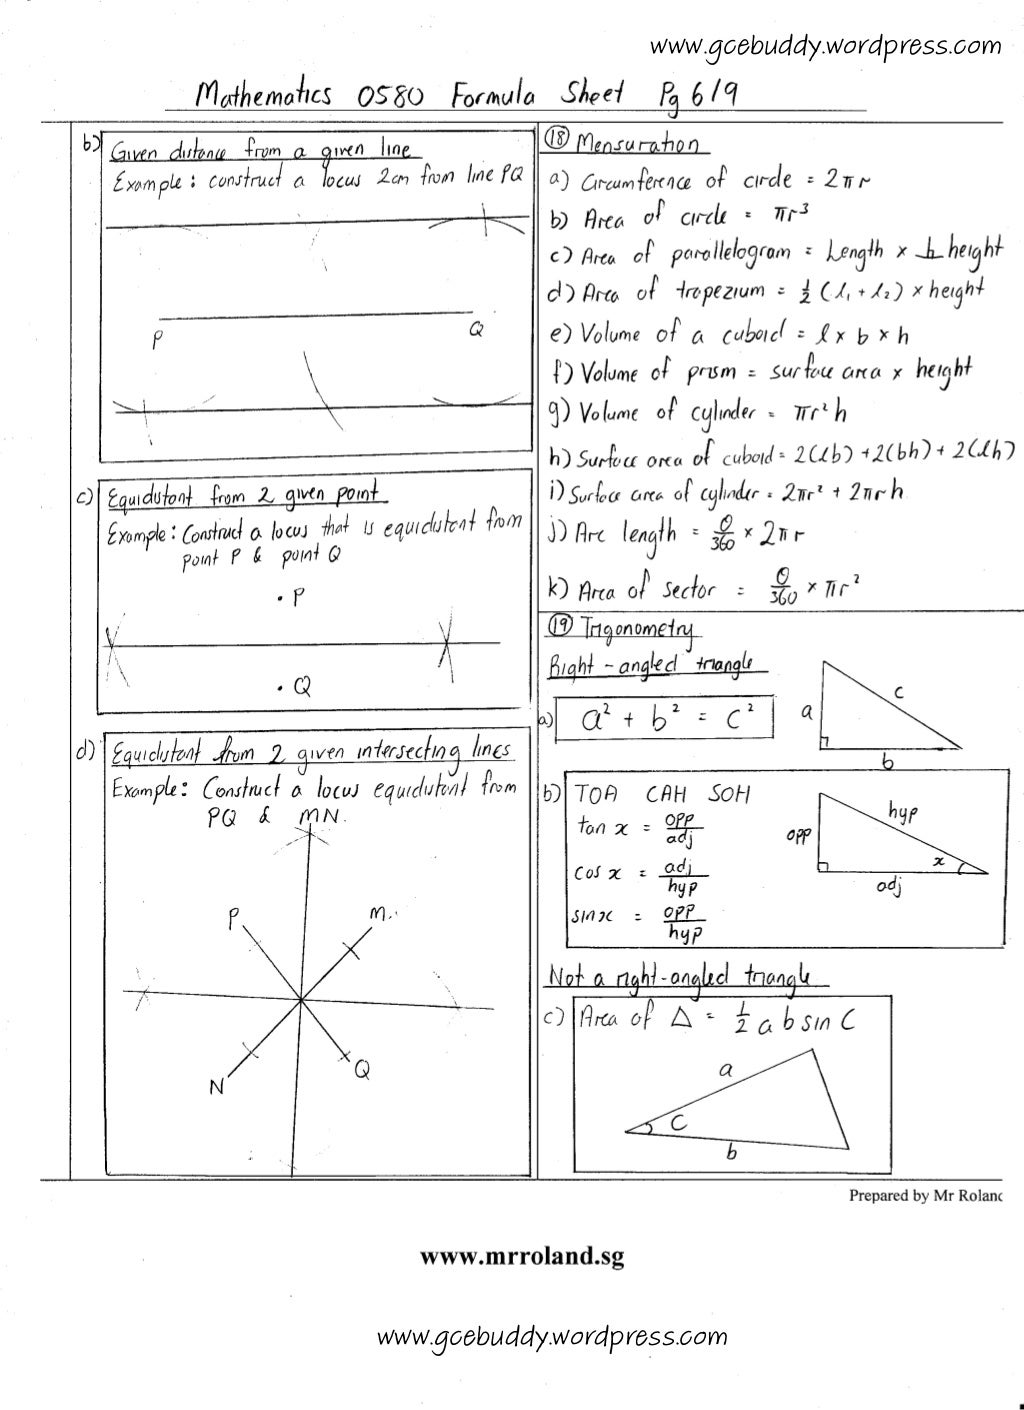 www.gcebuddy.wordpress.com
Mathematics 0580 Formula Sheet Pg 6/9
b) Given distance from a given line
Example: construct a locus 2cm from line PQ
P
Q
c) Equidistant from 2 given point
Example: Construct a locus that is equidistant from
point P & point Q
P
Q
d) Equidistant from 2 given intersecting lines
Example: Construct a locus equidistant from
PQ & MN.
P
M
N
Q
⑱ Mensuration
a) Circumference of circle = 2πr
b) Area of circle = πr³
c) Area of parallelogram = Length × height
d) Area of trapezium = ½ (l₁ + l₂) × height
e) Volume of a cuboid = l × b × h
f) Volume of prism = surface area × height
g) Volume of cylinder = πr²h
h) Surface area of cuboid = 2(lb) + 2(bh) + 2(lh)
i) Surface area of cylinder = 2πr² + 2πrh
j) Arc length = θ/360 × 2πr
k) Area of sector = θ/360 × πr²
⑲ Trigonometry
Right-angled triangle
a) a² + b² = c²
a
c
b
b) TOA CAH SOH
tan x = opp/adj
cos x = adj/hyp
sin x = opp/hyp
opp
hyp
x
adj
Not a right-angled triangle
c) Area of △ = ½ a b sin C
a
C
b
Prepared by Mr Rolanc
www.mrroland.sg
www.gcebuddy.wordpress.com